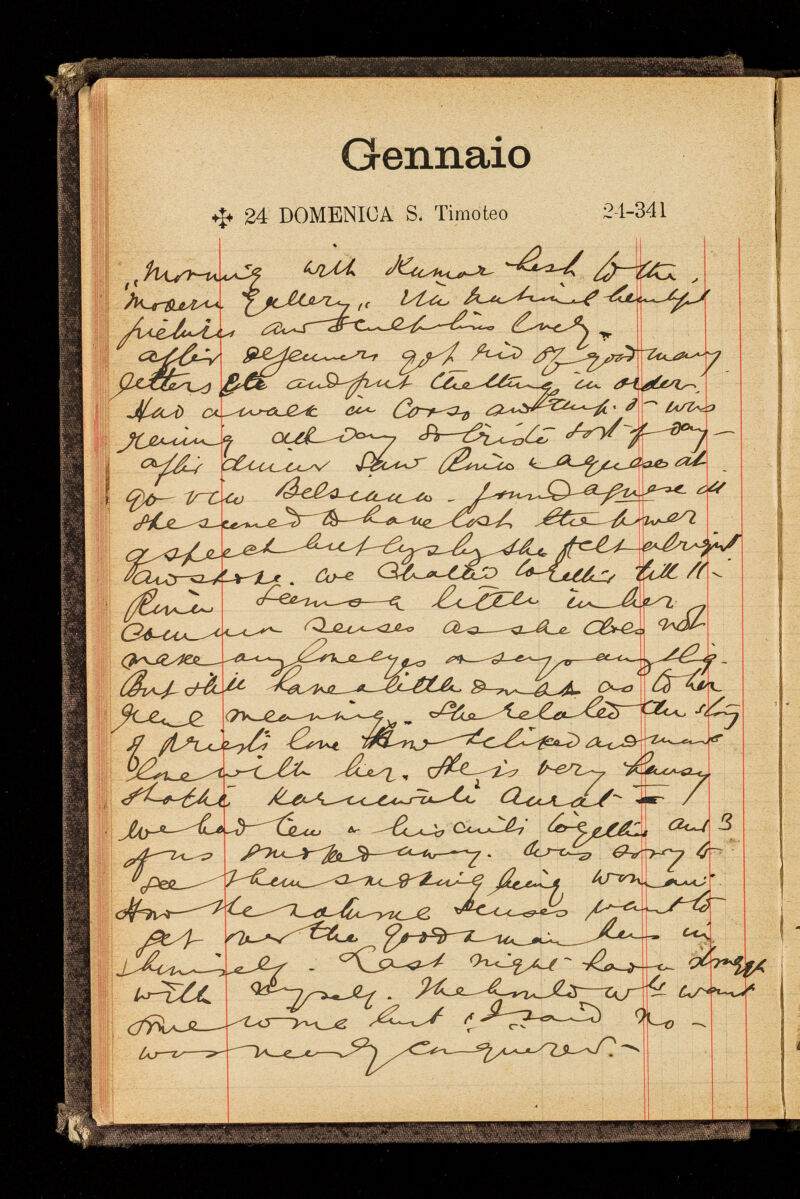 Gennaio
✣ 24 DOMENICA S. Timoteo 24-341
„Morning with Kumar best to the
Modern Gallery„ the national beautiful
pictures and lovely.
after dejeuners got rid of good many
letters etc and put the things in order.
Had a walk on Corso and it was
raining all day so triste sort of day –
after dinner saw at
90 via Belsiana. found agnese ill
she seemed to have lost the power
of speech but by & by she felt alright
and spoke. We chatted together till 11 –
seems a little in her
common senses as she does not
make any love eyes or says anything.
But still have a little doubt as to her
real meaning. She related the story
of Priest's love how he liked and made
love with her. She is very
aurat =
We had tea & biscuits together and 3
of us smoked away. was sorry to
see them smoking being woman.
How the natural senses want to
get over the good a man has in
himself. Last night had a struggle
with myself. The want
some but I said no –
was nearly conquered. –